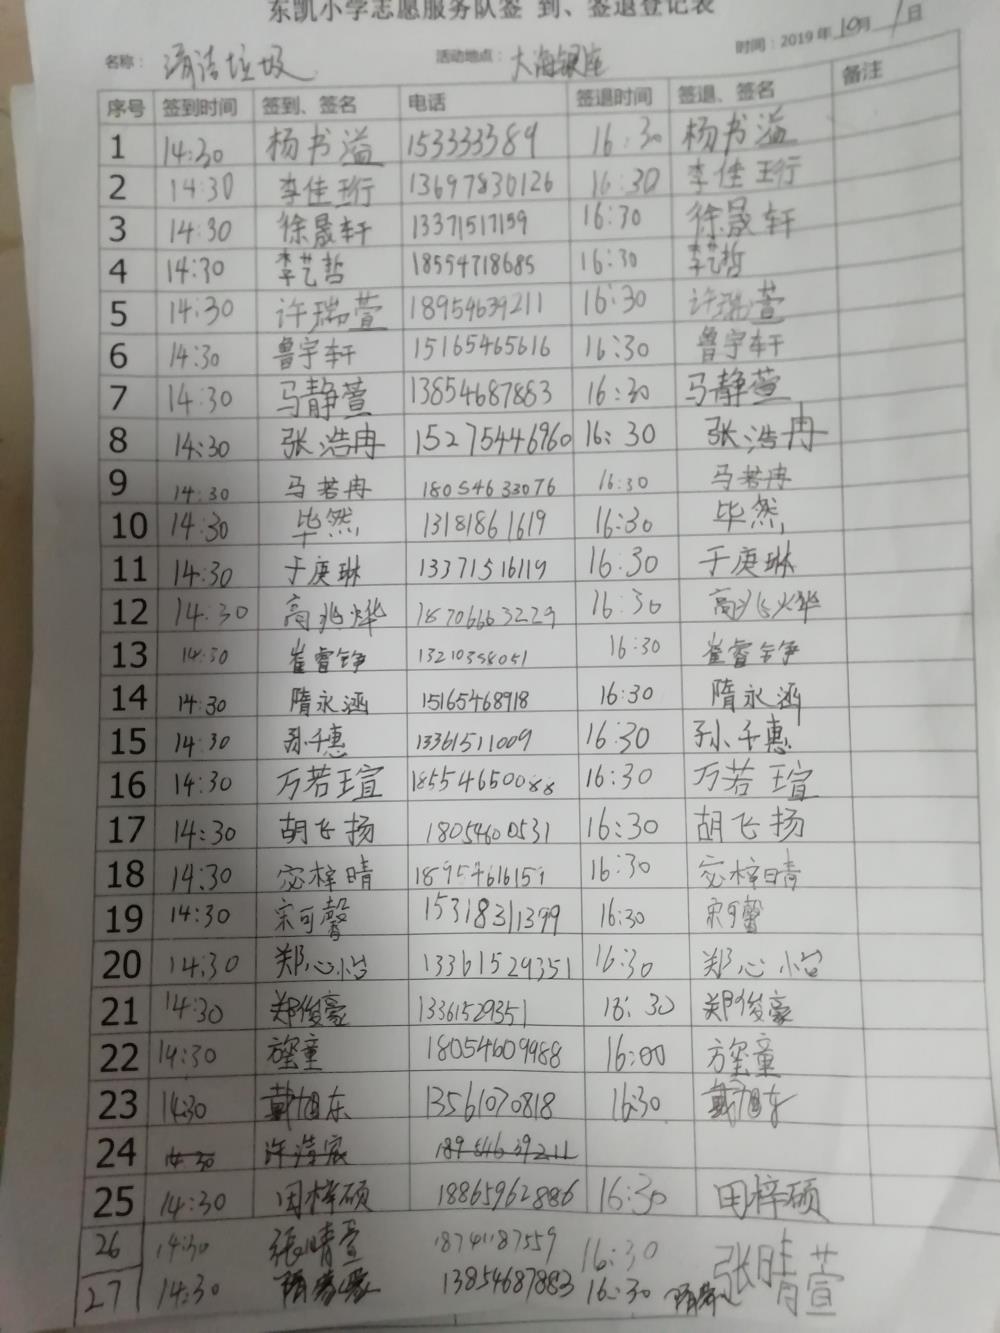 东凯小学志愿服务队签 到、签退登记表
名称： 清洁垃圾 活动地点： 大海银座 时间：2019年10月1日
序号 签到时间 签到、签名 电话 签退时间 签退、签名 备注
1 14:30 杨书溢 153333389 16:30 杨书溢
2 14:30 李佳珩 13697830126 16:30 李佳珩
3 14:30 徐晟轩 13371517159 16:30 徐晟轩
4 14:30 李艺哲 18554718685 16:30 李艺哲
5 14:30 许瑞萱 18954639211 16:30 许瑞萱
6 14:30 鲁宇轩 15165465616 16:30 鲁宇轩
7 14:30 马静萱 13854687883 16:30 马静萱
8 14:30 张浩冉 15275446960 16:30 张浩冉
9 14:30 马若冉 18054633076 16:30 马若冉
10 14:30 毕然 13181861619 16:30 毕然
11 14:30 于庚琳 13371516119 16:30 于庚琳
12 14:30 高兆烨 18706663229 16:30 高兆烨
13 14:30 崔睿铮 13210358051 16:30 崔睿铮
14 14:30 隋永涵 15165468918 16:30 隋永涵
15 14:30 孙千惠 13361511009 16:30 孙千惠
16 14:30 万若瑄 18554650088 16:30 万若瑄
17 14:30 胡飞扬 18054600531 16:30 胡飞扬
18 14:30 宓梓晴 18954616151 16:30 宓梓晴
19 14:30 宋可馨 15318311399 16:30 宋可馨
20 14:30 郑心怡 13361529351 16:30 郑心怡
21 14:30 郑俊豪 13361529351 16:30 郑俊豪
22 14:30 童 18054609988 16:00 童
23 14:30 戴旭东 13561070818 16:30 戴旭东
24 14:30 许 宸 18954639211
25 14:30 田梓硕 18865962886 16:30 田梓硕
26 14:30 张晴萱 18741187559 16:30 张晴萱
27 14:30 13854687883 16:30